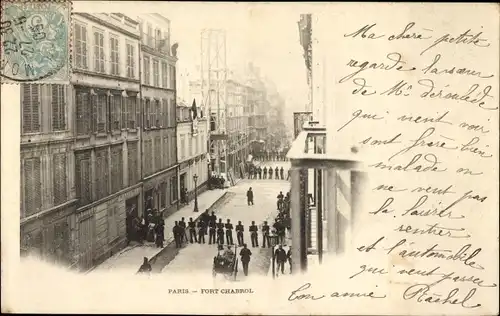 Ma chère petite
regarde la sœur
de Mr déroulède
qui vient voir
sont frère bien
malade on
ne veut pas
la laisser
rentrer
et l'automobile
qui veut passer
Ton amie Rachel
PARIS. — FORT CHABROL